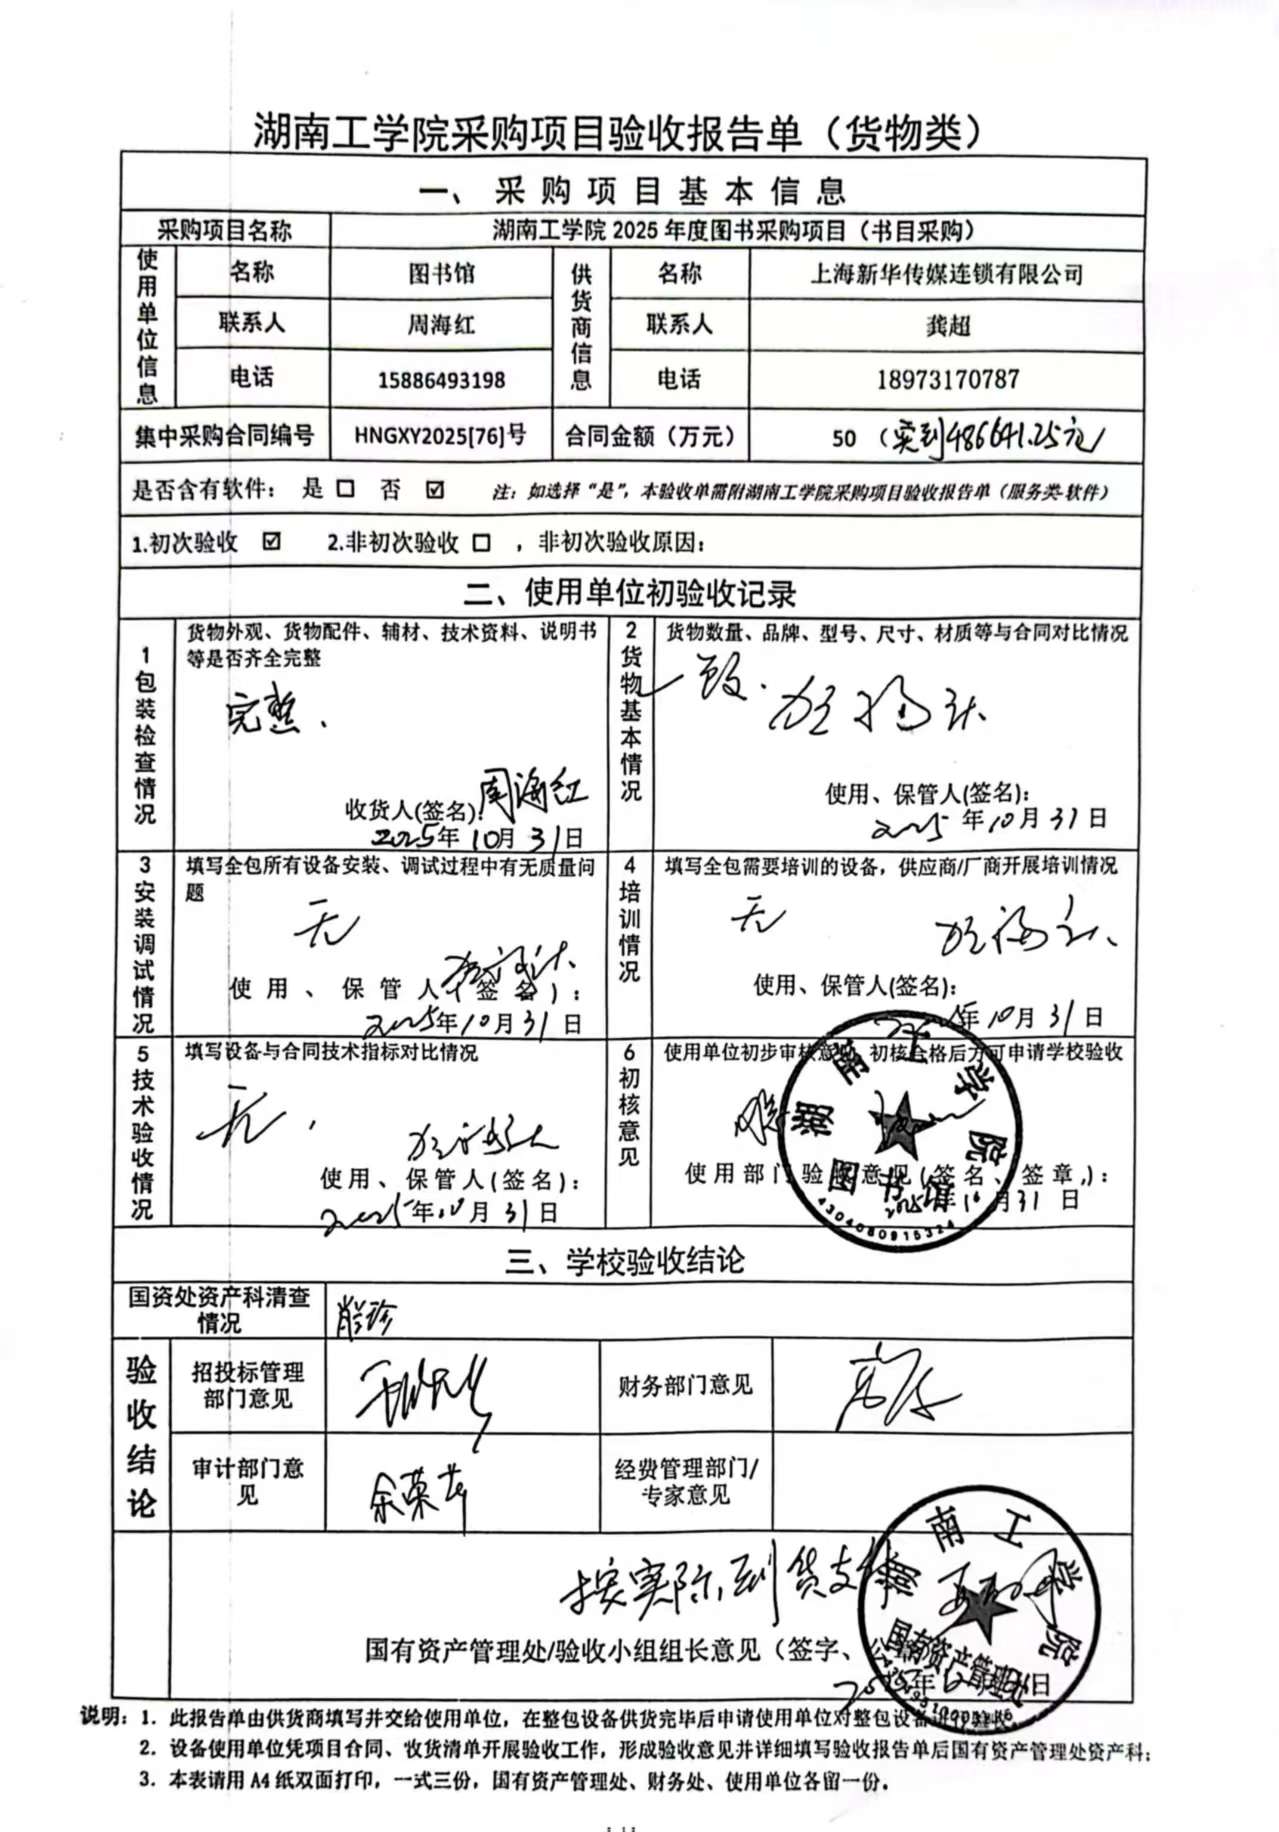 湖南工学院采购项目验收报告单（货物类）
一、采购项目基本信息
采购项目名称 湖南工学院 2025 年度图书采购项目（书目采购）
使用单位信息 名称 图书馆 供货商信息 名称 上海新华传媒连锁有限公司
联系人 周海红 联系人 龚超
电话 15886493198 电话 18973170787
集中采购合同编号 HNGXY2025[76]号 合同金额（万元） 50（实到486641.25元
是否含有软件： 是 □ 否 ☑ 注：如选择“是”，本验收单需附湖南工学院采购项目验收报告单（服务类-软件）
1.初次验收 ☑ 2.非初次验收 □ ，非初次验收原因：
二、使用单位初验收记录
1 包装检查情况
货物外观、货物配件、辅材、技术资料、说明书
等是否齐全完整
完整.
收货人(签名): 周海红
2025年10月31日
2 货物基本情况
货物数量、品牌、型号、尺寸、材质等与合同对比情况
一致.
使用、保管人(签名)：
2025年10月31日
3 安装调试情况
填写全包所有设备安装、调试过程中有无质量问
题
无
使用、保管人(签名)：
2025年10月31日
4 培训情况
填写全包需要培训的设备，供应商/厂商开展培训情况
无
使用、保管人(签名)：
年10月31日
5 技术验收情况
填写设备与合同技术指标对比情况
无.
使用、保管人(签名)：
2025年10月31日
6 初核意见
使用单位初步审核意见，初核合格后方可申请学校验收
使用部门验收意见(签名、签章)：
2025年10月31日
湖南工学院
图书馆
4304080915324
三、学校验收结论
国资处资产科清查
情况
验收结论
招投标管理
部门意见
财务部门意见
审计部门意
见
经费管理部门/
专家意见
按实际到货支付
国有资产管理处/验收小组组长意见（签字、
年 日
湖南工学院
国有资产管理处
说明：1. 此报告单由供货商填写并交给使用单位，在整包设备供货完毕后申请使用单位对整包设备进行验收；
2. 设备使用单位凭项目合同、收货清单开展验收工作，形成验收意见并详细填写验收报告单后国有资产管理处资产科；
3. 本表请用 A4 纸双面打印，一式三份，国有资产管理处、财务处、使用单位各留一份。